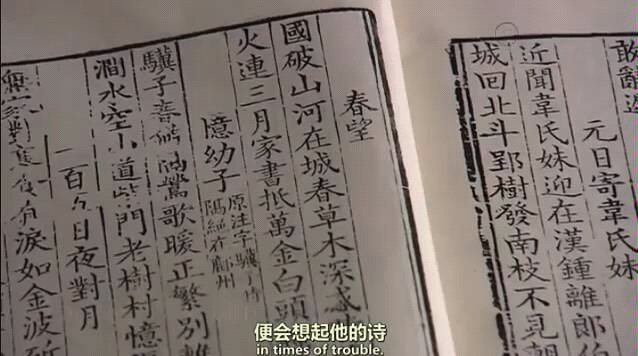 敢辭
元日寄韋氏妹
近聞韋氏妹迎在漢鍾離郎伯
城回北斗郢樹發南枝不見朝
春望
國破山河在城春草木深感
火連三月家書抵萬金白頭
憶幼子
原注字驥子時
隔絕在鄜州
驥子春猶隔鶯歌暖正繁別離
澗水空山道柴門老樹村憶
一百五日夜對月
無家對寒食有淚如金波斫
便会想起他的诗
in times of trouble.